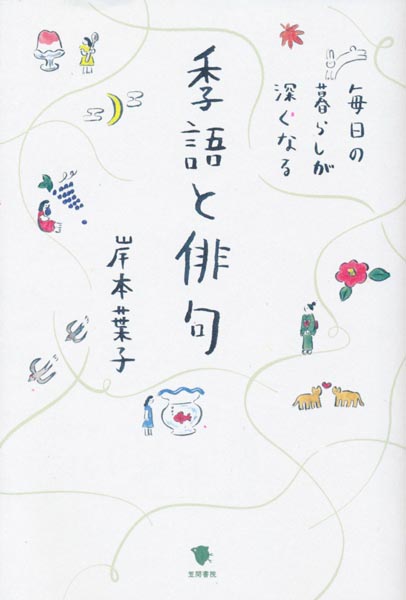 毎日の
暮らしが
深くなる
季語と俳句
岸本葉子
笠間書院